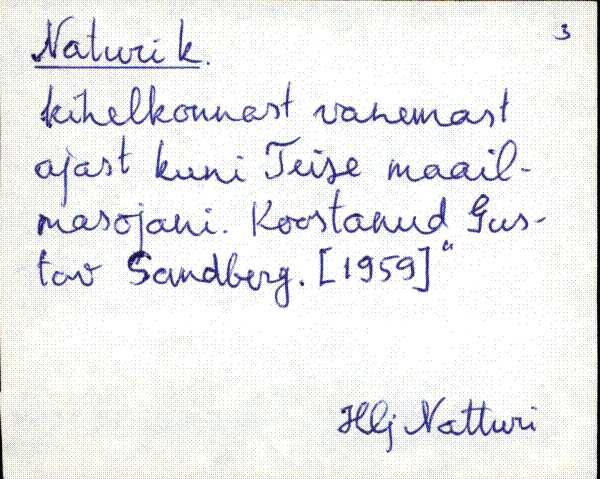 3
Naturi k.
kihelkonnast vanemast
ajast kuni Teise maail-
masojani. Koostanud Gus-
tav Sandberg. [1959]"
Hlj Natturi